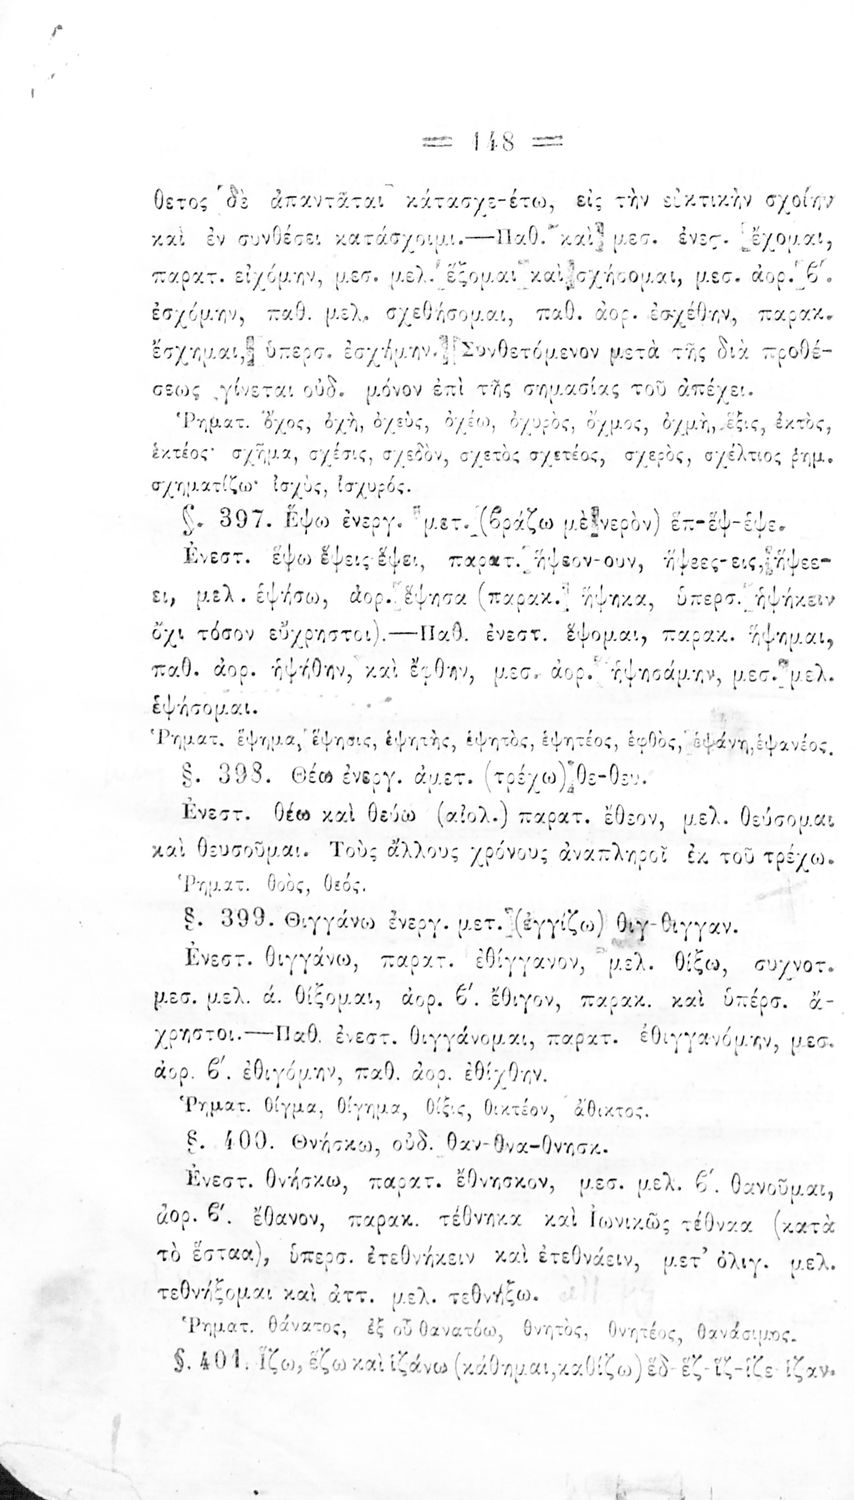 == 148 ==
θετος δὲ ἀπαντᾶται κάτασχε-έτω, εἰς τὴν εὐκτικὴν σχοίην
καὶ ἐν συνθέσει κατάσχοιμι.—Παθ. καὶ μεσ. ἐνεσ. ἔχομαι,
παρατ. εἰχόμην, μεσ. μελ. ἕξομαι καὶ σχήσομαι, μεσ. ἀορ. ϐ′.
ἐσχόμην, παθ. μελ. σχεθήσομαι, παθ. ἀορ. ἐσχέθην, παρακ.
ἔσχημαι, ὑπερσ. ἐσχήμην. Συνθετόμενον μετὰ τῆς διὰ προθέ-
σεως γίνεται οὐδ. μόνον ἐπὶ τῆς σημασίας τοῦ ἀπέχει.
Ῥηματ. ὄχος, ὀχὴ, ὀχεὺς, ὀχέω, ὀχυρὸς, ὄχμος, ὀχμὴ, ἕξις, ἑκτὸς,
ἑκτέος· σχῆμα, σχέσις, σχεδὸν, σχετὸς σχετέος, σχερὸς, σχέλτιος ῥημ.
σχηματίζω· ἰσχὺς, ἰσχυρός.
§. 397. Ἕψω ἐνεργ. μετ. (βράζω μὲ νερὸν) ἕπ-ἕψ-έψε.
Ἐνεστ. ἕψω ἕψεις ἕψει, παρατ. ἥψεον-ουν, ἥψεες-εις, ἥψεε-
ει, μελ. ἑψήσω, ἀορ. ἕψησα (παρακ. ἥψηκα, ὑπερσ. ἡψήκειν
ὄχι τόσον εὔχρηστοι).—Παθ. ἐνεστ. ἕψομαι, παρακ. ἥψημαι,
παθ. ἀορ. ἡψήθην, καὶ ἕφθην, μεσ. ἀορ. ἡψησάμην, μεσ. μελ.
ἑψήσομαι.
Ῥηματ. ἕψημα, ἕψησις, ἑψητὴς, ἑψητὸς, ἑψητέος, ἑφθὸς, ἑψάνη, ἑψανέος.
§. 398. Θέω ἐνεργ. ἀμετ. (τρέχω) θε-θευ.
Ἐνεστ. θέω καὶ θεύω (αἰολ.) παρατ. ἔθεον, μελ. θεύσομαι
καὶ θευσοῦμαι. Τοὺς ἄλλους χρόνους ἀναπληροῖ ἐκ τοῦ τρέχω.
Ῥηματ. θοὸς, θεός.
§. 399. Θιγγάνω ἐνεργ. μετ. (ἐγγίζω) θιγ-θιγγαν.
Ἐνεστ. θιγγάνω, παρατ. ἐθίγγανον, μελ. θίξω, συχνοτ.
μεσ. μελ. ά. θίξομαι, ἀορ. ϐ′. ἔθιγον, παρακ. καὶ ὑπέρσ. ἄ-
χρηστοι.—Παθ. ἐνεστ. θιγγάνομαι, παρατ. ἐθιγγανόμην, μεσ.
ἀορ. ϐ′. ἐθιγόμην, παθ. ἀορ. ἐθίχθην.
Ῥηματ. θίγμα, θίγημα, θίξις, θικτέον, ἄθικτος.
§. 400. Θνήσκω, οὐδ. θαν-θνα-θνησκ.
Ἐνεστ. θνήσκω, παρατ. ἔθνησκον, μεσ. μελ. ϐ′. θανοῦμαι,
ἀορ. ϐ′. ἔθανον, παρακ. τέθνηκα καὶ Ἰωνικῶς τέθναα (κατὰ
τὸ ἕσταα), ὑπερσ. ἐτεθνήκειν καὶ ἐτεθνάειν, μετ' ὀλιγ. μελ.
τεθνήξομαι καὶ ἀττ. μελ. τεθνήξω.
Ῥηματ. θάνατος, ἐξ οὗ θανατόω, θνητὸς, θνητέος, θανάσιμος.
§. 401. Ἵζω, ἕζω καὶ ἱζάνω (κάθημαι, καθίζω) ἑδ-ἑζ-ἱζ-ἱζε-ἱζαν.